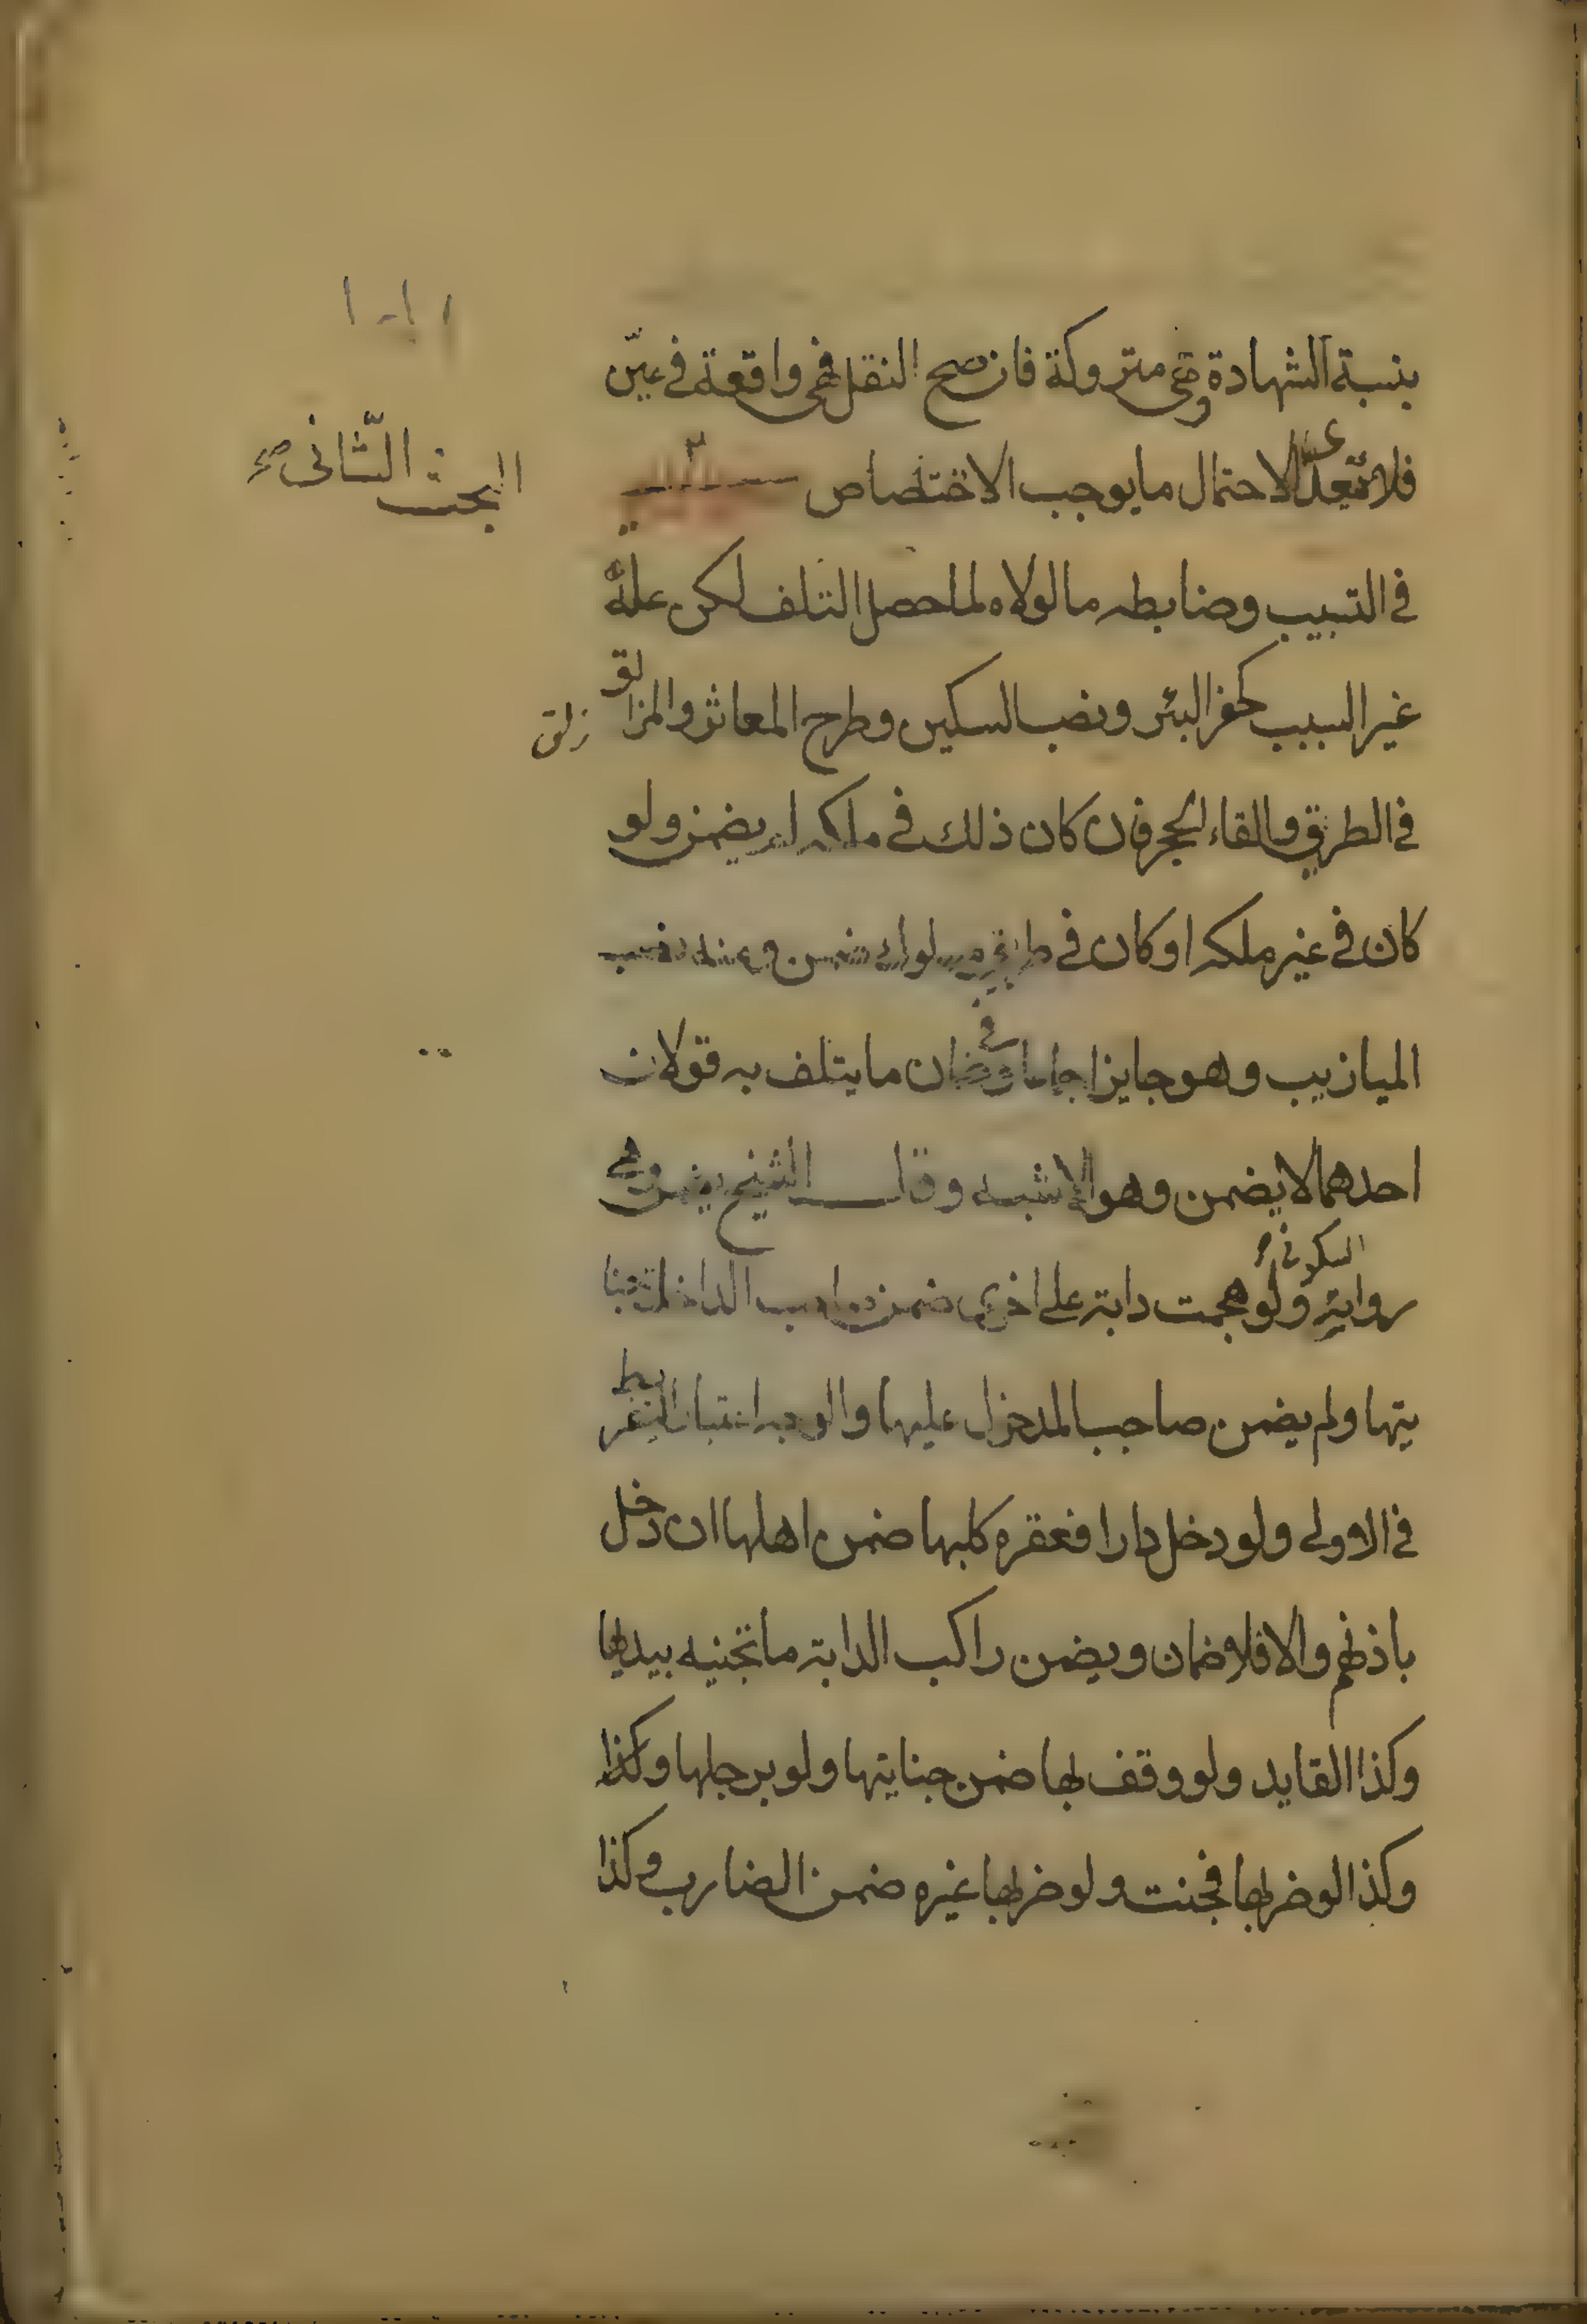 بنسبة الشهادة وهى متروكة فان صح النقل فهى واقعة فى عين
فلا يتعدى لاحتمال ما يوجب الاختصاص
البحث الثانى صح
فى التسبيب وضابطه ما لولاه لما حصل التلف لكن علة
غير السبب كحفر البئر ونصب السكين وطرح المعاثر والمزالق
زلق
فى الطريق والقاء الحجر فان كان ذلك فى ملكه لم يضمن ولو
كان فى غير ملكه او كان فى طريق مسلوك ضمن ومنه نصب
الميازيب وهو جايز اجماعا وفى ضمان ما يتلف به قولان
احدهما لا يضمن وهو الاشبه وقال الشيخ يضمن وهى
رواية السكونى ولو هجمت دابة على اخرى ضمن صاحب الداخلة جنا
يتها ولم يضمن صاحب المدخول عليها والوجه اعتبار التفريط
فى الاولى ولو دخل دارا فعقره كلبها ضمن اهلها ان دخل
باذنهم والا فلا ضمان ويضمن راكب الدابة ما تجنيه بيديها
وكذا القايد ولو وقف بها ضمن جنايتها ولو برجلها وكذا
وكذا لو ضربها فجنت ولو ضربها غيره ضمن الضارب وكذا